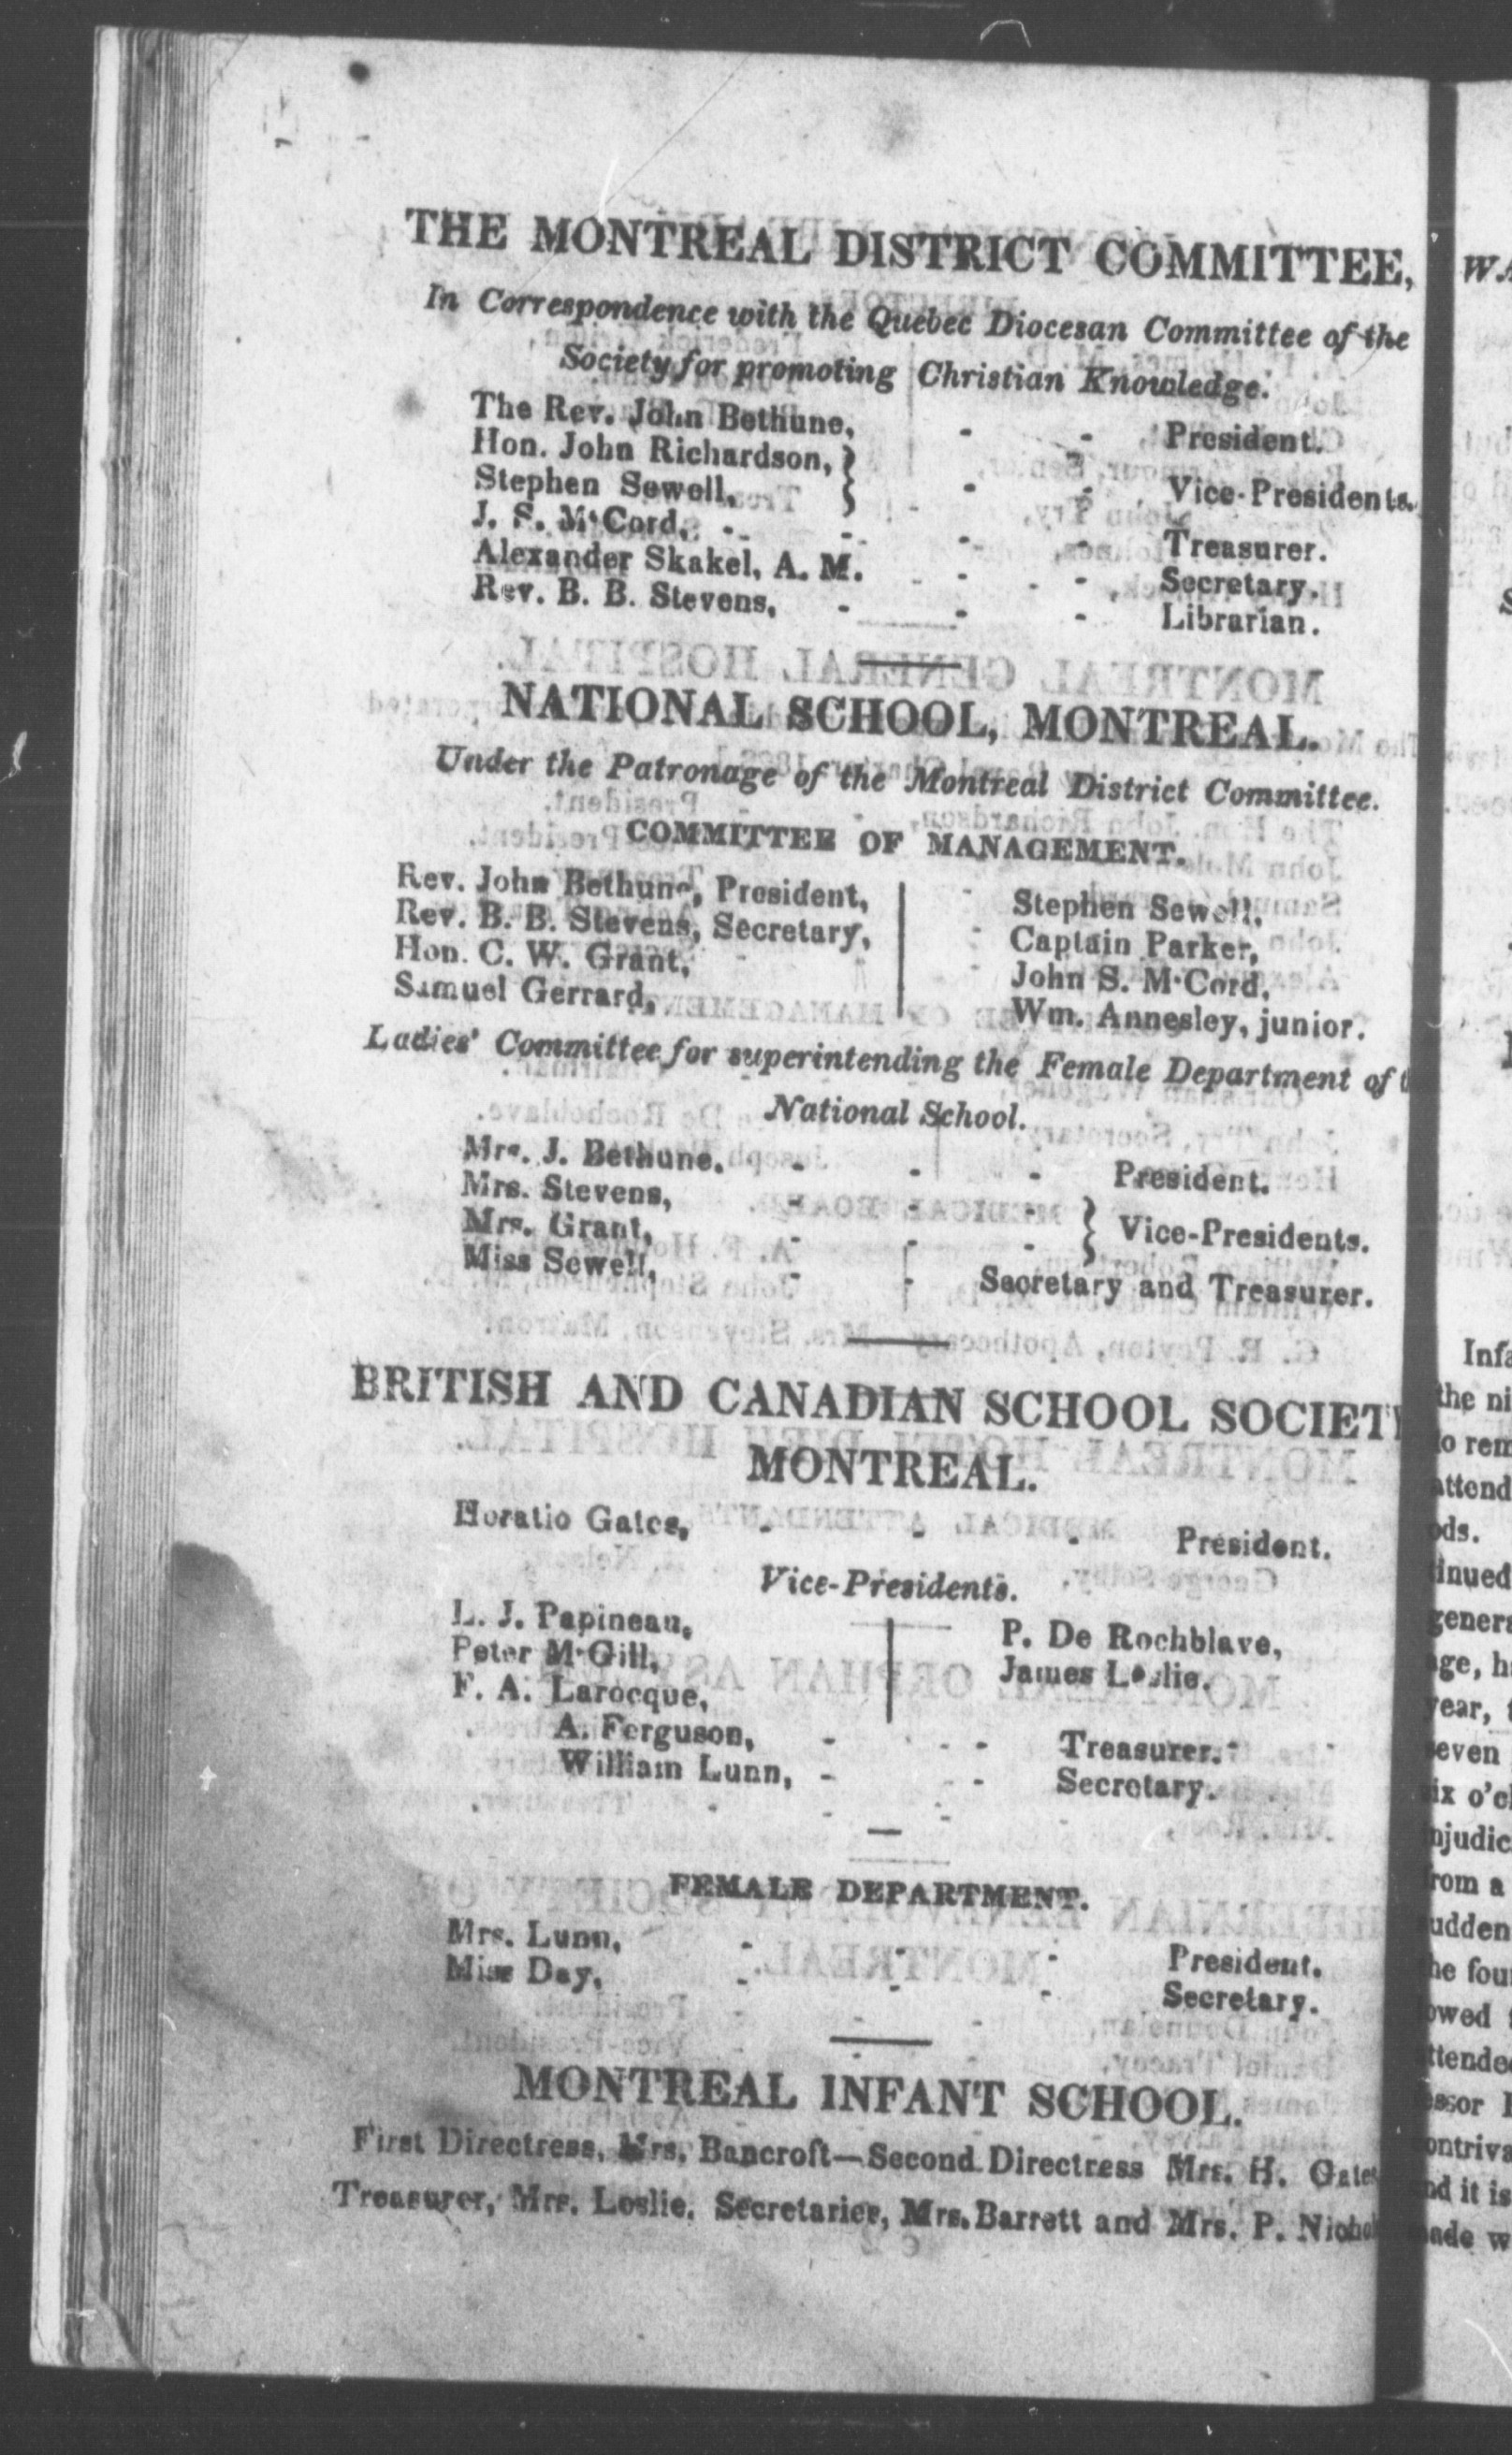 THE MONTREAL DISTRICT COMMITTEE,
In Correspondence with the Quebec Diocesan Committee of the
Society for promoting Christian Knowledge.
The Rev. John Bethune, - - President.
Hon. John Richardson, }
Stephen Sewell, } - - Vice-Presidents.
J. S. M'Cord, - - - - Treasurer.
Alexander Skakel, A. M. - - - - Secretary.
Rev. B. B. Stevens, - - - Librarian.
NATIONAL SCHOOL, MONTREAL.
Under the Patronage of the Montreal District Committee.
COMMITTEE OF MANAGEMENT.
Rev. John Bethune, President, Stephen Sewell,
Rev. B. B. Stevens, Secretary, Captain Parker,
Hon. C. W. Grant, John S. M'Cord,
Samuel Gerrard, Wm. Annesley, junior.
Ladies' Committee for superintending the Female Department of
National School.
Mrs. J. Bethune. - - - President.
Mrs. Stevens, - - - } Vice-Presidents.
Mrs. Grant, - - - }
Miss Sewell, - - Secretary and Treasurer.
BRITISH AND CANADIAN SCHOOL SOCIET
MONTREAL.
Horatio Gates, - - - President.
Vice-Presidents.
L. J. Papineau, P. De Rochblave,
Peter M'Gill, James Leslie.
F. A. Larocque,
A. Ferguson, - - - Treasurer.
William Lunn, - - - Secretary.
FEMALE DEPARTMENT.
Mrs. Lunn, - - - President.
Miss Day, - - - Secretary.
MONTREAL INFANT SCHOOL.
First Directress, Mrs. Bancroft—Second Directress Mrs. H. Gates
Treasurer, Mrs. Leslie. Secretaries, Mrs. Barrett and Mrs. P. Nichol